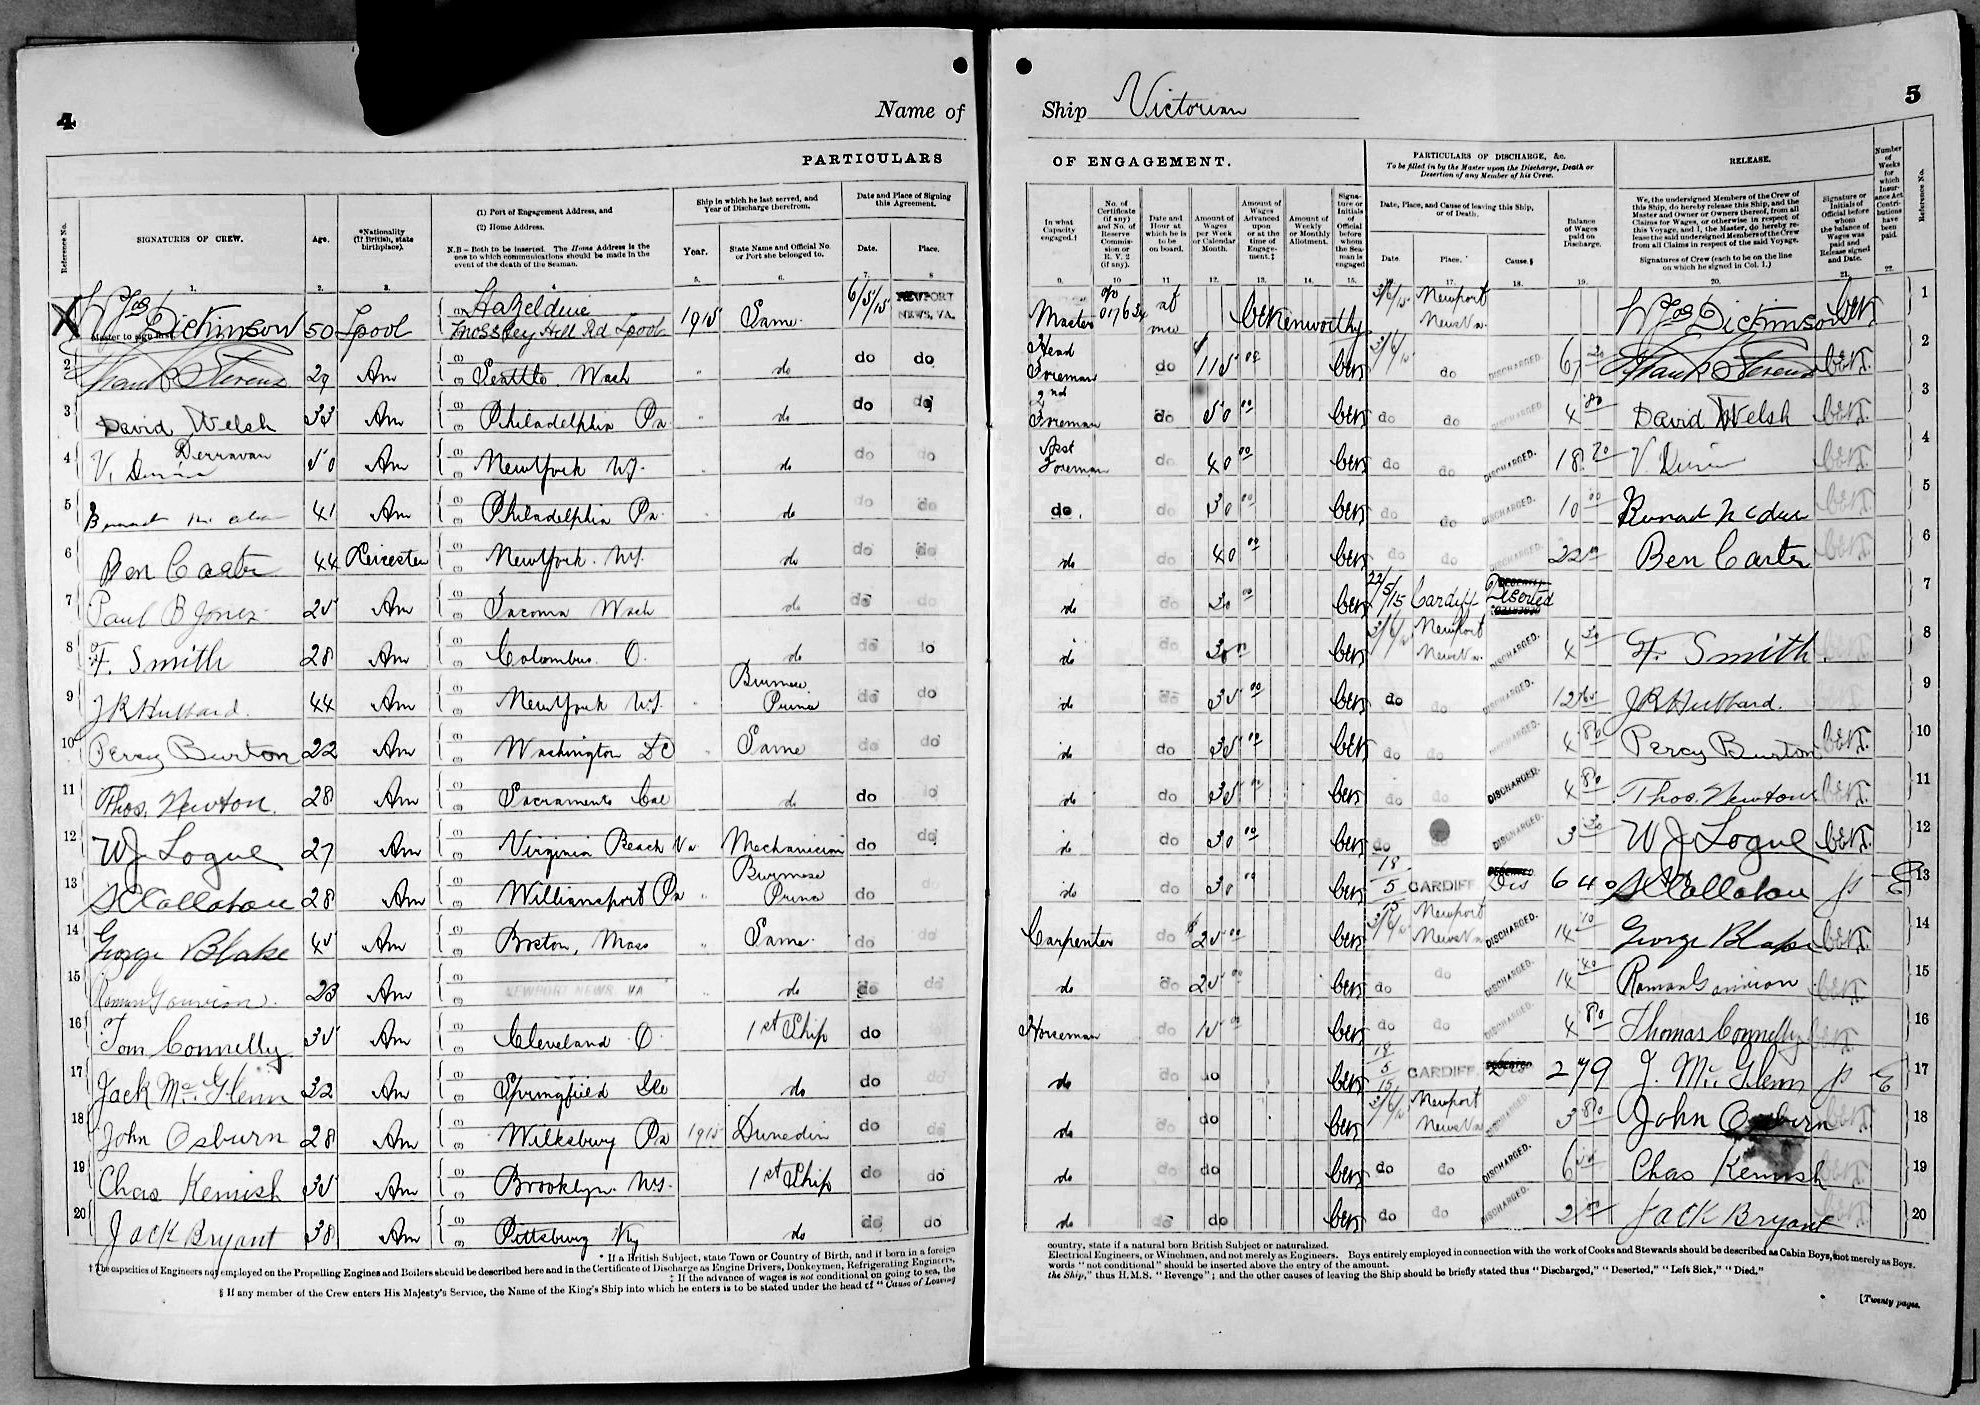 4
Name of
PARTICULARS
Reference No.
SIGNATURES OF CREW.
Age.
*Nationality
(If British, state
birthplace).
(1) Port of Engagement Address, and
(2) Home Address.
N.B – Both to be inserted. The Home Address is the
one to which communications should be made in the
event of the death of the Seaman.
Ship in which he last served, and
Year of Discharge therefrom.
Year.
State Name and Official No.
or Port she belonged to.
Date and Place of Signing
this Agreement.
Date.
Place.
1. 2. 3. 4. 5. 6. 7. 8
Master to sign first.
Dickinson 50 Lpool Hazeldine
Mossley Hill Rd Lpool 1915 Same 6/5/15 NEWPORT
NEWS, VA.
2 Frank Stevens 29 Am Seattle Wash " do do do
3 David Welsh 33 Am Philadelphia Pa " do do do
4 V. Derravan 50 Am New York N.Y. " do do do
5 41 Am Philadelphia Pa " do do do
6 Ben Carter 44 Leicester New York N.Y. do do do
7 Paul B Jones 25 Am Tacoma Wash do do do
8 F. Smith 28 Am Columbus O. do do do
9 J R Hubbard 44 Am New York N.Y. " Burmese
Prince do do
10 Percy Burton 22 Am Washington DC " Same do do
11 Thos. Newton 28 Am Sacramento Cal do do do
12 W J Logue 27 Am Virginia Beach Va Mechanician do do
13 S Callahan 28 Am Williamsport Pa " Burmese
Prince do
14 George Blake 45 Am Boston, Mass " Same do do
15 23 Am NEWPORT NEWS VA " do do do
16 Tom Connelly 35 Am Cleveland O. 1st Ship do
17 Jack McGlenn 32 Am Springfield do do do
18 John Osburn 28 Am Wilksbury Pa 1915 Dunedin do do
19 Chas Kemish 35 Am Brooklyn N.Y. 1st Ship do do
20 Jack Bryant 38 Am Pittsburg Ky do do do
* If a British Subject, state Town or Country of Birth, and if born in a foreign
† The capacities of Engineers not employed on the Propelling Engines and Boilers should be described here and in the Certificate of Discharge as Engine Drivers, Donkeymen, Refrigerating Engineers,
‡ If the advance of wages is not conditional on going to sea, the
§ If any member of the Crew enters His Majesty's Service, the Name of the King's Ship into which he enters is to be stated under the head of "Cause of Leaving
5
Ship Victorian
OF ENGAGEMENT.
PARTICULARS OF DISCHARGE, &c.
To be filled in by the Master upon the Discharge, Death or
Desertion of any Member of his Crew.
RELEASE.
Number
of
Weeks
for
which
Insur-
ance Act
Contri-
butions
have
been
paid.
Reference No.
In what
Capacity
engaged.†
No. of
Certificate
(if any)
and No. of
Reserve
Commis-
sion or
R. V. 2
(if any).
Date and
Hour at
which he is
to be
on board.
Amount of
Wages
per Week
or Calendar
Month.
Amount of
Wages
Advanced
upon
or at the
time of
Engage-
ment.‡
Amount of
Weekly
or Monthly
Allotment.
Signa-
ture or
Initials
of
Official
before
whom
the Sea-
man is
engaged
Date, Place, and Cause of leaving this Ship,
or of Death.
Date.
Place.
Cause.§
Balance
of Wages
paid on
Discharge.
We, the undersigned Members of the Crew of
this Ship, do hereby release this Ship, and the
Master and Owner or Owners thereof, from all
Claims for Wages, or otherwise in respect of
this Voyage, and I, the Master, do hereby re-
lease the said undersigned Members of the Crew
from all Claims in respect of the said Voyage.
Signatures of Crew (each to be on the line
on which he signed in Col. 1.)
Signature or
Initials of
Official before
whom
the balance of
Wages was
paid and
Release signed
and Date.
9. 10 11 12. 13. 14. 15. 16. 17. 18. 19. 20. 21. 22.
Master at Kenworthy 3/6/15 Newport
News Va. Dickinson 1
Head
Foreman do 115 00 3/6/15 do DISCHARGED. 67 20 Frank Stevens 2
2nd
Foreman do 50 00 do do DISCHARGED. 4 80 David Welsh 3
Asst
Foreman do 40 00 do do DISCHARGED. 18 70 4
do. do 30 00 do do DISCHARGED. 10 00 5
do do 40 00 do do DISCHARGED. 22 Ben Carter 6
do do 30 00 22/5/15 Cardiff Deserted 7
do do 30 00 3/6/15 Newport
News Va. DISCHARGED. 4 30 F. Smith 8
do do 35 00 do do DISCHARGED. 12 65 J R Hubbard 9
do do 35 00 do do DISCHARGED. 4 80 Percy Burton 10
do do 35 00 do do DISCHARGED. 4 80 Thos. Newton 11
do do 30 00 do DISCHARGED. 3 30 W J Logue 12
do do 30 00 18/5/15 CARDIFF Dis 6 40 S Callahan 13
Carpenter do $25 00 3/6/15 Newport
News Va DISCHARGED. 14 10 George Blake 14
do do 25 00 do do DISCHARGED. 14 40 15
Horseman do 15 00 do do DISCHARGED. 4 80 Thomas Connelly 16
do do do 18/5/15 CARDIFF Dis 2 79 J. McGlenn 17
do do do 3/6/15 Newport
News Va DISCHARGED. 3 80 John Osburn 18
do do do do do DISCHARGED. 6 Chas Kemish 19
do do do do do DISCHARGED. 2 Jack Bryant 20
country, state if a natural born British Subject or naturalized.
Electrical Engineers, or Winchmen, and not merely as Engineers. Boys entirely employed in connection with the work of Cooks and Stewards should be described as Cabin Boys, not merely as Boys.
words "not conditional" should be inserted above the entry of the amount.
the Ship," thus H.M.S. "Revenge"; and the other causes of leaving the Ship should be briefly stated thus "Discharged," "Deserted," "Left Sick," "Died."
[Twenty pages.